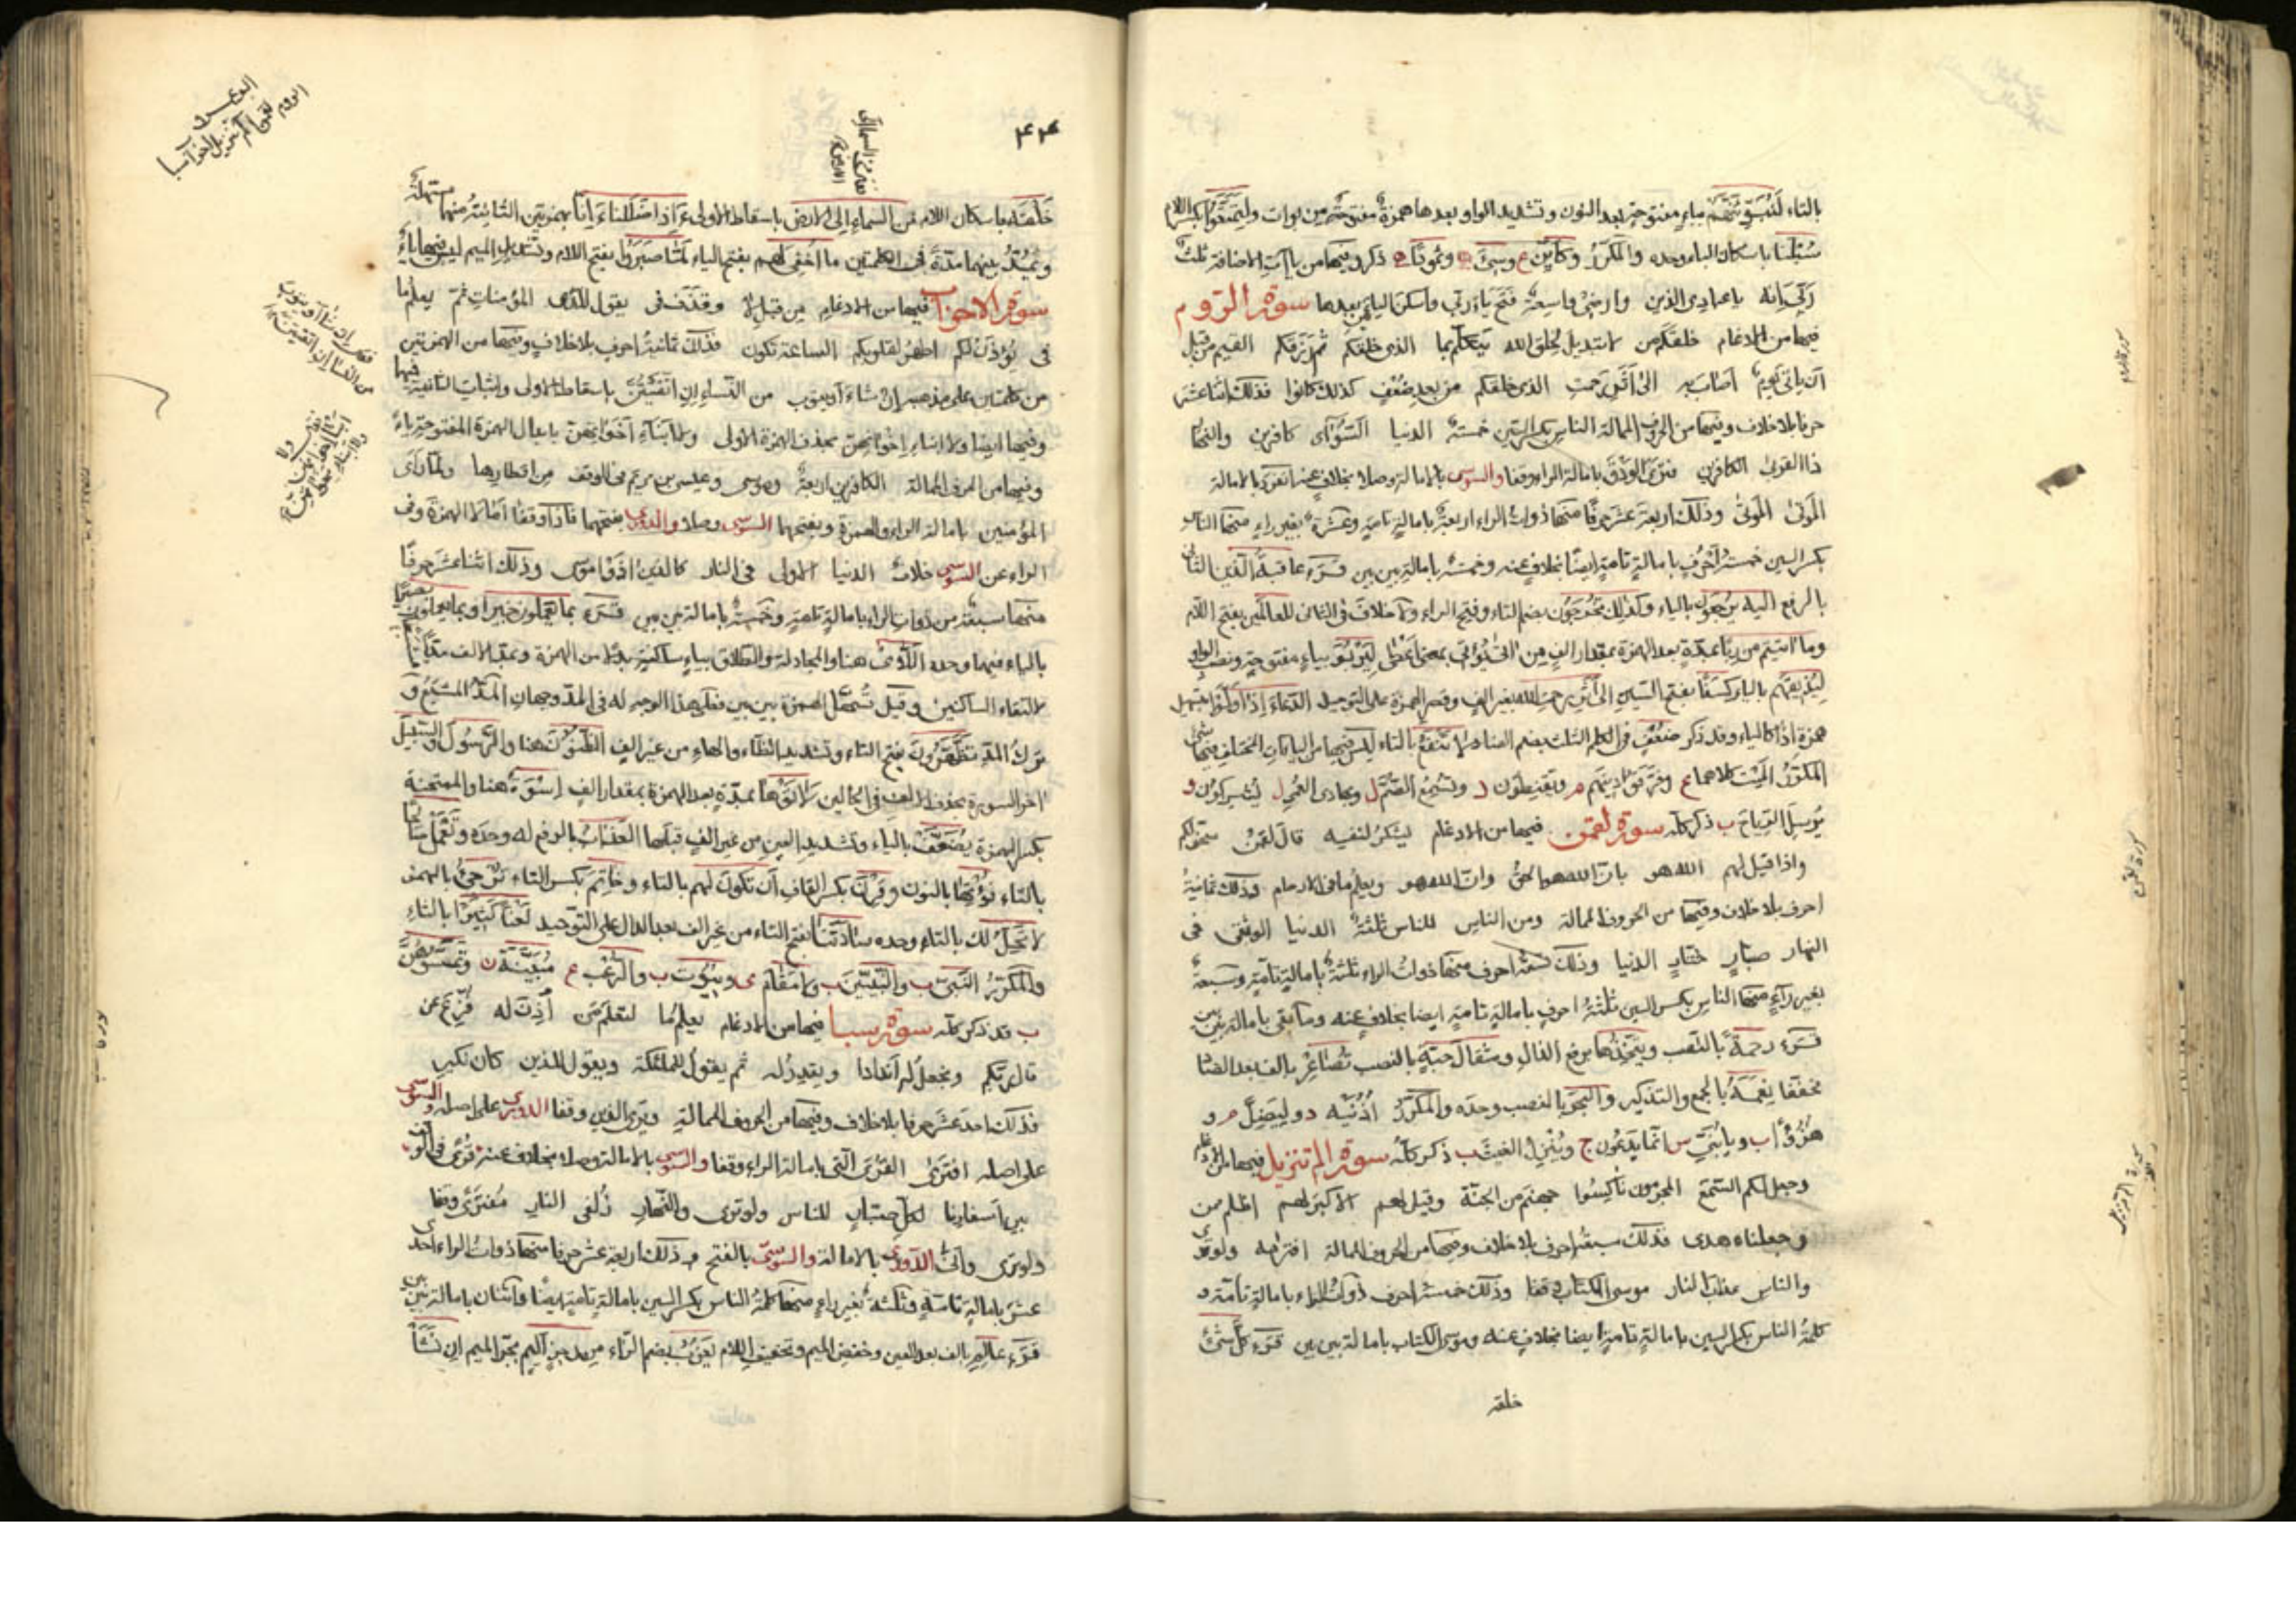 بالتاء لَنُبَوِّئَنَّهُم بباء مفتوحة بعد النون وتشديد الواو وبعدها همزة مفتوحة من بوات وليتمتعوا بكسر اللام
سُبْلَنا باسكان الباء وحده والمكرّر وكأيّن ع وسيئ وثمودًا ذكر وفيها من ياآت الاضافة ثلث
ربّي انه يا عبادي الذين وارضي واسعة فتح ياء ربي واسكن اليائين بعدها سورة الروم
فيها من الادغام خلقكم من لا تبديل لخلق الله يتكلم بما الذي خلقكم ثم رزقكم القيم من قبل
ان ياتي يوم اصاب به الى اثر رحمت الذي خلقكم من بعد ضعف كذلك كانوا فذلك اثنا عشر
حرفا بلا خلاف وفيها من الحروف الممالة الناس بكسر السين خمسة الدنيا السوأى كافرين والنهار
ذا القربى الكافرين فترى الودق بامالة الراء وقفا والسوسي بالامالة وصلا بخلاف عنه انفرد بالامالة
الموتى الموتى وذلك اربعة عشر حرفا منها ذوات الراء اربعة بامالة تامة وعشرة بغير راء منها الناس
بكسر السين خمسة احرف بامالة تامة ايضا بخلاف عنه وخمسة بامالة بين بين قرء عاقبةُ الذين الثاني
بالرفع اليه يرجعون بالياء وكذلك تُخرَجون بضم التاء وفتح الراء ولا خلاف في الثاني للعالَمين بفتح اللام
وما اتيتم من ربا بمدة بعد الهمزة بمقدار الف من اتى يؤتي بمعنى اعطى ليربوَ بياء مفتوحة ونصب الواو
ليذيقهم بالياء كسفا بفتح السين الى اثر رحمت الله بغير الف وقصر الهمزة على التوحيد الدعاء اذا ولوا بتسهيل
همزة اذا كالياء وقد ذكر ضعف في الكلم الثلث بضم الضاد لا تنفع بالتاء ليس فيها من الياءات المختلف فيها شئ
المكرّر الميت كلاهما ع وفرّقوا دينهم م ويقنطون ر وتسمع الصم ل وبهادى العمي ل يشركون و
يرسل الرياح ب ذكر كله سورة لقمن فيها من الادغام يشكر لنفسه قال لقمن سخر لكم
واذا قيل لهم الله هو بان الله هو الحق وان الله هو ويعلم ما في الارحام فذلك ثمانية
احرف بلا خلاف وفيها من الحروف الممالة ومن الناس للناس ثلثة الدنيا الوثقى في
النهار صبّار ختّار الدنيا وذلك تسعة احرف منها ذوات الراء ثلثة بامالة تامة وسبعة
بغير راء منها الناس بكسر السين ثلثة احرف بامالة تامة ايضا بخلاف عنه وما بقى بامالة بين بين
قرء رحمةً بالنصب ويتخذُها برفع الذال ومثقال حبة بالنصب تصاعر بالف بعد الصاد
مخففا نعمه بالجمع والتذكير والبحرَ بالنصب وحده والمكرّر اذنيه د و ليضل م و
هزؤا ب ويابنيّ س انما يدعون ج وينزل الغيث ب ذكر كله سورة الم تنزيل فيها من الادغام
وجعل لكم السمع المجرمون ناكسوا جهنم من الجنة وقيل لهم الاكبر لعلهم اظلم ممن
وجعلناه هدى فذلك سبعة احرف بلا خلاف وفيها من الحروف الممالة افتراه ولو ترى
والناس عذاب النار موسى الكتاب وقفا وذلك خمسة احرف ذوات الراء بامالة تامة و
كلمة الناس بكسر السين بامالة تامة ايضا بخلاف عنه وموسى الكتاب بامالة بين بين قرء كل شئ
خلقه
سورة الروم
سورة لقمن
سورة الم تنزيل
٤٤
خلقه باسكان اللام من السماء الى الارض باسقاط الاولى ء اذا ضللنا ء انا بهمزتين الثانية منهما مسهلة
ويمد بينهما مدة في الكلمتين ما اخفي لهم بفتح الياء لمّا صبروا بفتح اللام وتشديد الميم ليس فيها ياء
سورة الاحزاب فيها من الادغام من قبل لا وقذف في يقول للذي المؤمنات ثم يعلم ما
في يؤذن لكم اطهر لقلوبكم الساعة تكون فذلك ثمانية احرف بلا خلاف وفيها من الهمزتين
من كلمتين على مذهبه ان شاء او يتوب من النساء ان اتقيتن باسقاط الاولى واثبات الثانية فيها
وفيها ايضا ولا ابناء اخوانهن بحذف الهمزة الاولى ولا ابناء اخواتهن بابدال الهمزة المفتوحة ياء
وفيها من الحروف الممالة الكافرين اربعة وموسى وعيسى بن مريم في الوقف من اقطارها ولما رأى
المؤمنين بامالة الراء والهمزة وبفتحهما السوسي وصلا والدوري بفتحهما فاذا وقفا امالا الهمزة وفي
الراء عن السوسي خلاف الدنيا الاولى في النار كالذين اذوا موسى وذلك اثنا عشر حرفا
منها سبعة من ذوات الراء بامالة تامة وخمسة بامالة بين بين قرء بما يعملون خبيرا وبما يعملون بصيرا
بالياء فيهما وحده اللائي هنا والمجادلة والطلاق بياء ساكنة بدلا من الهمزة ويمد الالف مدا
لالتقاء الساكنين وقيل تسهل الهمزة بين بين فعلى هذا الوجه له في المد وجهان المد المشبع و
ترك المد تظهرون بفتح التاء وتشديد الظاء والهاء من غير الف الظنون هنا والرسول والسبيل
اخر السورة بحذف الالف في الحالين لاتوها بمدة بعد الهمزة بمقدار الف اسوة هنا والممتحنة
بكسر الهمزة يضعّف بالياء وتشديد العين من غير الف قبلها العذاب بالرفع له وحده وتعمل صالحا
بالتاء نؤتها بالنون وقرن بكسر القاف ان تكون لهم بالتاء وخاتم بكسر التاء ترجئ بالهمز
لا تحل لك بالتاء وحده سادتنا بفتح التاء من غير الف بعد الدال على التوحيد لعنا كثيرا بالثاء
والمكرّر النبي ب والنبيين ب ولا مقام ى وبيوت ب والرعب ع مبينة ن وتمسوهن
ب قد ذكر كله سورة سبا فيها من الادغام يعلم ما لنعلم من أذن له فزع عن
قال ربكم ونجعل له اندادا ويقدر له ثم يقول للملئكة ويقول للذين كان نكير
فذلك احد عشر حرفا بلا خلاف وفيها من الحروف الممالة ويرى الذين وقفا الدوري على اصله والسوسي
على اصله افترى القرى التى بامالة الراء وقفا والسوسي بالامالة وصلا بخلاف عنه قرى في الوقف
بين اسفارنا لكل صبّار للناس ولو ترى والنهار زلفى النار مفترى وقفا
ولو ترى وأنّى الدوري بالامالة والسوسي بالفتح وذلك اربعة عشر حرفا منها ذوات الراء احدى
عشر بامالة تامة وثلثة بغير راء منها كلمة الناس بكسر السين بامالة تامة ايضا واثنان بامالة بين بين
قرء عالِمِ بالف بعد العين وخفض الميم وتخفيف اللام يعزُب بضم الزاء من رجز اليم بجر الميم ان نشأ